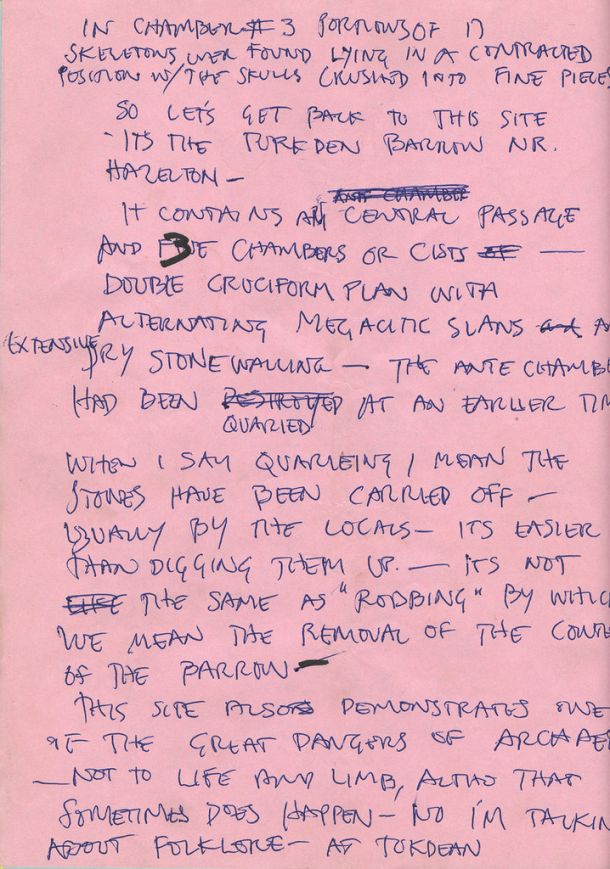 IN CHAMBER # 3 PORTIONS OF 17
SKELETONS WER FOUND LYING IN A CONTRACTED
POSITION W/ THE SKULLS CRUSHED INTO FINE PIECES
SO LET'S GET BACK TO THIS SITE
- ITS THE TURKDEN BARROW NR.
HAZELTON —
ANT CHAMBER
IT CONTAINS AN CENTRAL PASSAGE
AND 3 CHAMBERS OR CISTS —
DOUBLE CRUCIFORM PLAN WITH
ALTERNATING MEGALITIC SLANS and A
EXTENSIVE DRY STONE WALLING — THE ANTE CHAMBE
HAD BEEN DESTROYED AT AN EARLIER TIM
QUARIED
WHEN I SAY QUARIEING I MEAN THE
STONES HAVE BEEN CARRIED OFF —
USUALLY BY THE LOCALS — ITS EASIER
THAN DIGGING THEM UP. — ITS NOT
THE SAME AS "ROBBING" BY WHIC
WE MEAN THE REMOVAL OF THE CONTE
OF THE BARROW —
THIS SITE ALSO DEMONSTRATES ONE
OF THE GREAT DANGERS OF ARCHAE
— NOT TO LIFE AND LIMB, ALTHO THAT
SOMETIMES DOES HAPPEN — NO I'M TALKIN
ABOUT FOLKLORE — AT TURDEAN